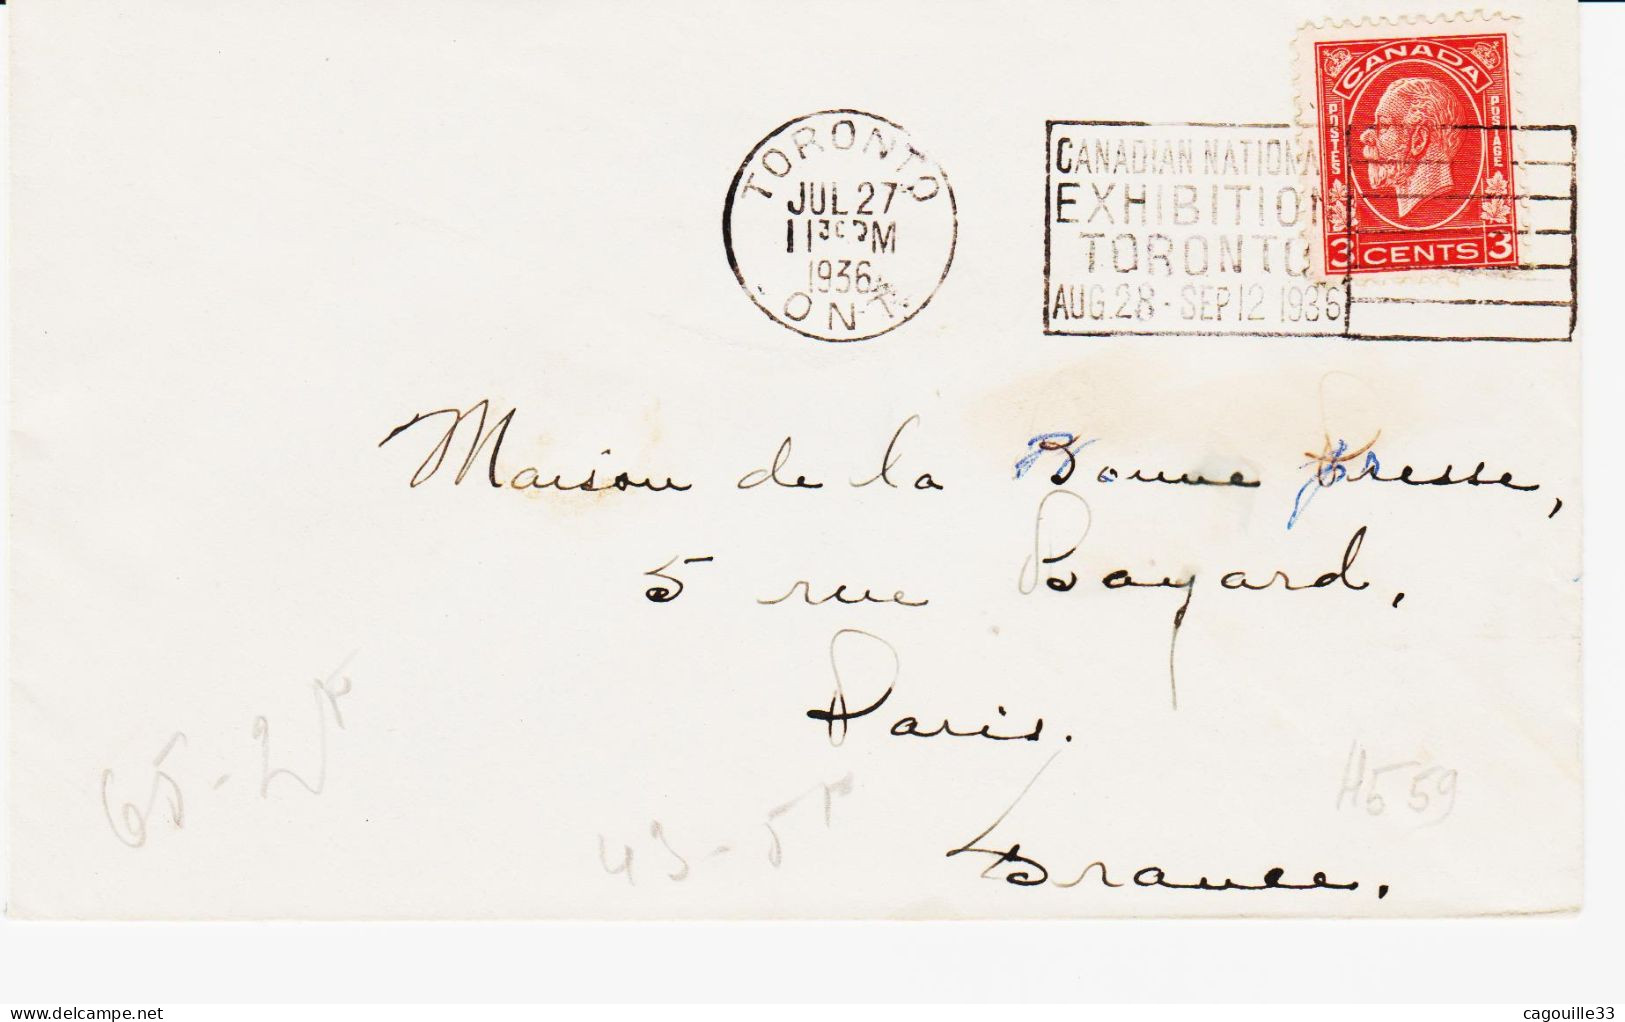 CANADA
POSTES
POSTAGE
3 CENTS 3
TORONTO
JUL 27
11 30 PM
1936
ONT.
CANADIAN NATIONAL
EXHIBITION
TORONTO
AUG. 28 - SEP 12 1936
Maison de la Bonne Presse,
5 rue Bayard,
Paris.
France.
65 - 2F
43 - 5F
H5 59
delcampe.net
cagouille33